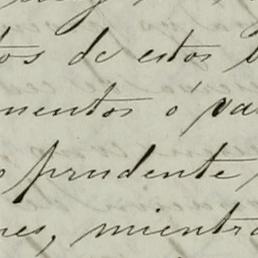 tos de estos
mentos o' va
prudente
nes, mientra